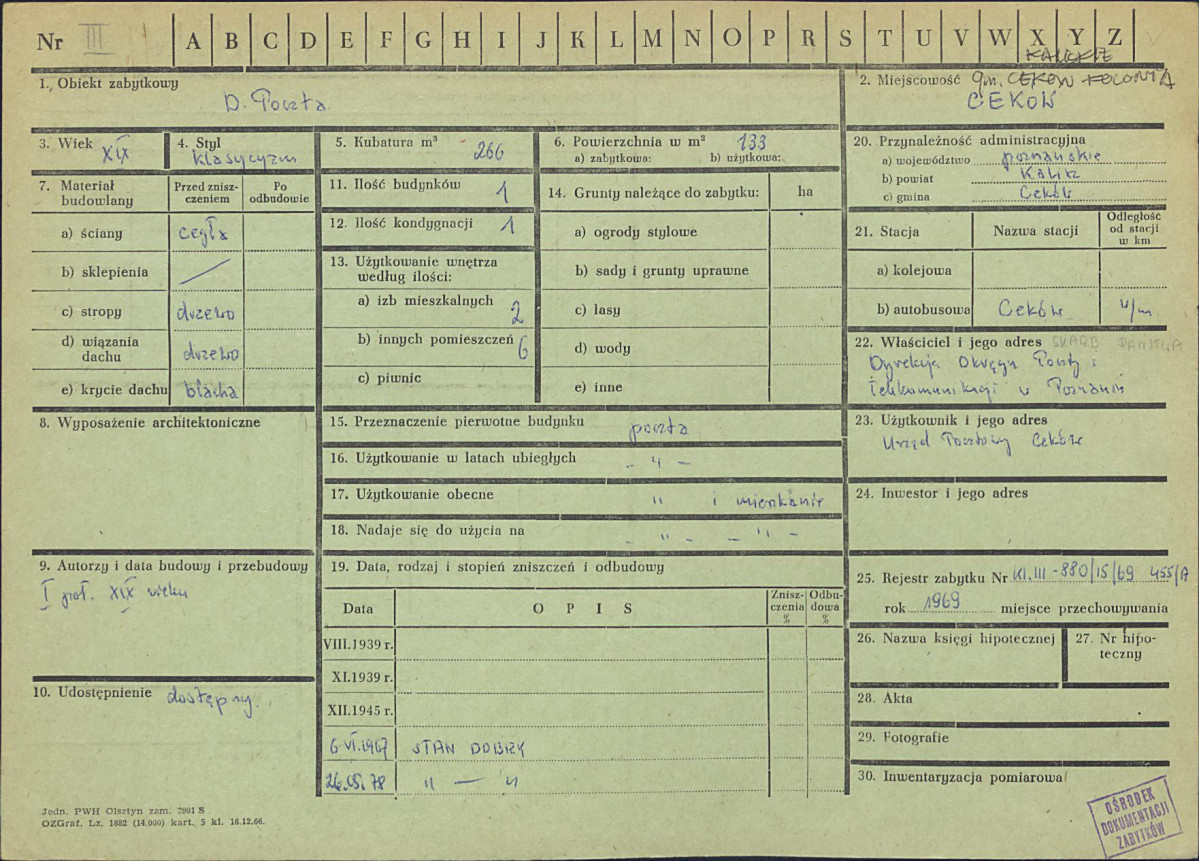 Nr III A B C D E F G H I J K L M N O P R S T U V W X Y Z
1. Obiekt zabytkowy
D. Poczta
2. Miejscowość gm. CEKÓW KOLONIA
KALISKIE
CEKÓW
3. Wiek XIX
4. Styl klasycyzm
5. Kubatura m³ 266
6. Powierzchnia w m² 133
a) zabytkowa: b) użytkowa:
7. Materiał budowlany
Przed zniszczeniem
Po odbudowie
a) ściany cegła
b) sklepienia /
c) stropy drzewo
d) wiązania dachu drzewo
e) krycie dachu blacha
8. Wyposażenie architektoniczne
9. Autorzy i data budowy i przebudowy
I poł. XIX wieku
10. Udostępnienie dostępny.
11. Ilość budynków 1
12. Ilość kondygnacji 1
13. Użytkowanie wnętrza
według ilości:
a) izb mieszkalnych 2
b) innych pomieszczeń 6
c) piwnic
14. Grunty należące do zabytku: ha
a) ogrody stylowe
b) sady i grunty uprawne
c) lasy
d) wody
e) inne
15. Przeznaczenie pierwotne budynku poczta
16. Użytkowanie w latach ubiegłych - " -
17. Użytkowanie obecne " i mieszkanie
18. Nadaje się do użycia na - " - - " -
19. Data, rodzaj i stopień zniszczeń i odbudowy
Data OPIS Zniszczenia % Odbudowa %
VIII.1939 r.
XI.1939 r.
XII.1945 r.
6.VI.1967 STAN DOBRY
26.IX.78 " — "
20. Przynależność administracyjna
a) województwo poznańskie
b) powiat Kalisz
c) gmina Ceków
21. Stacja Nazwa stacji Odległość od stacji w km
a) kolejowa
b) autobusowa Ceków w/m
22. Właściciel i jego adres SKARB PAŃSTWA
Dyrekcja Okręgu Poczty i
Telekomunikacji w Poznaniu
23. Użytkownik i jego adres
Urząd Pocztowy Ceków
24. Inwestor i jego adres
25. Rejestr zabytku Nr Kl.III-880/15/69 455/A
rok 1969 miejsce przechowywania
26. Nazwa księgi hipotecznej
27. Nr hipoteczny
28. Akta
29. Fotografie
30. Inwentaryzacja pomiarowa
Jedn. PWH Olsztyn zam. 2991 S
OZGraf. Lz. 1882 (14.000) kart. 5 kl. 16.12.66.
OŚRODEK
DOKUMENTACJI
ZABYTKÓW